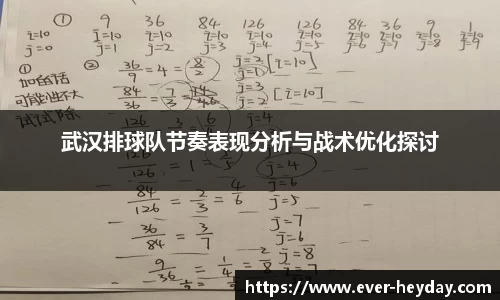 ① 9 36 84 126 126 84 36 9 1
i=10 i=10 i=10 i=10 i=10 i=10 i=10 i=10
j=0 j=1 j=2 j=3 j=4 j=5 j=7 j=8 j=9
① ② 36/9 = 4 = 8/2 j=2 j=1 [i=10]
如的话
可能性不大 84/36 = 7/3 j=3 j=2 [i=10]
试试除 126
武汉排球队节奏表现分析与战术优化探讨
126/126 = 1 = j=4
84/126 = 2/3 = 4/6 j=6 j=5
36/84 = 3/7 j=7 j=6
9/36 = 1/4 = 2/8 j=8 j=7
https://www.ever-heyday.com